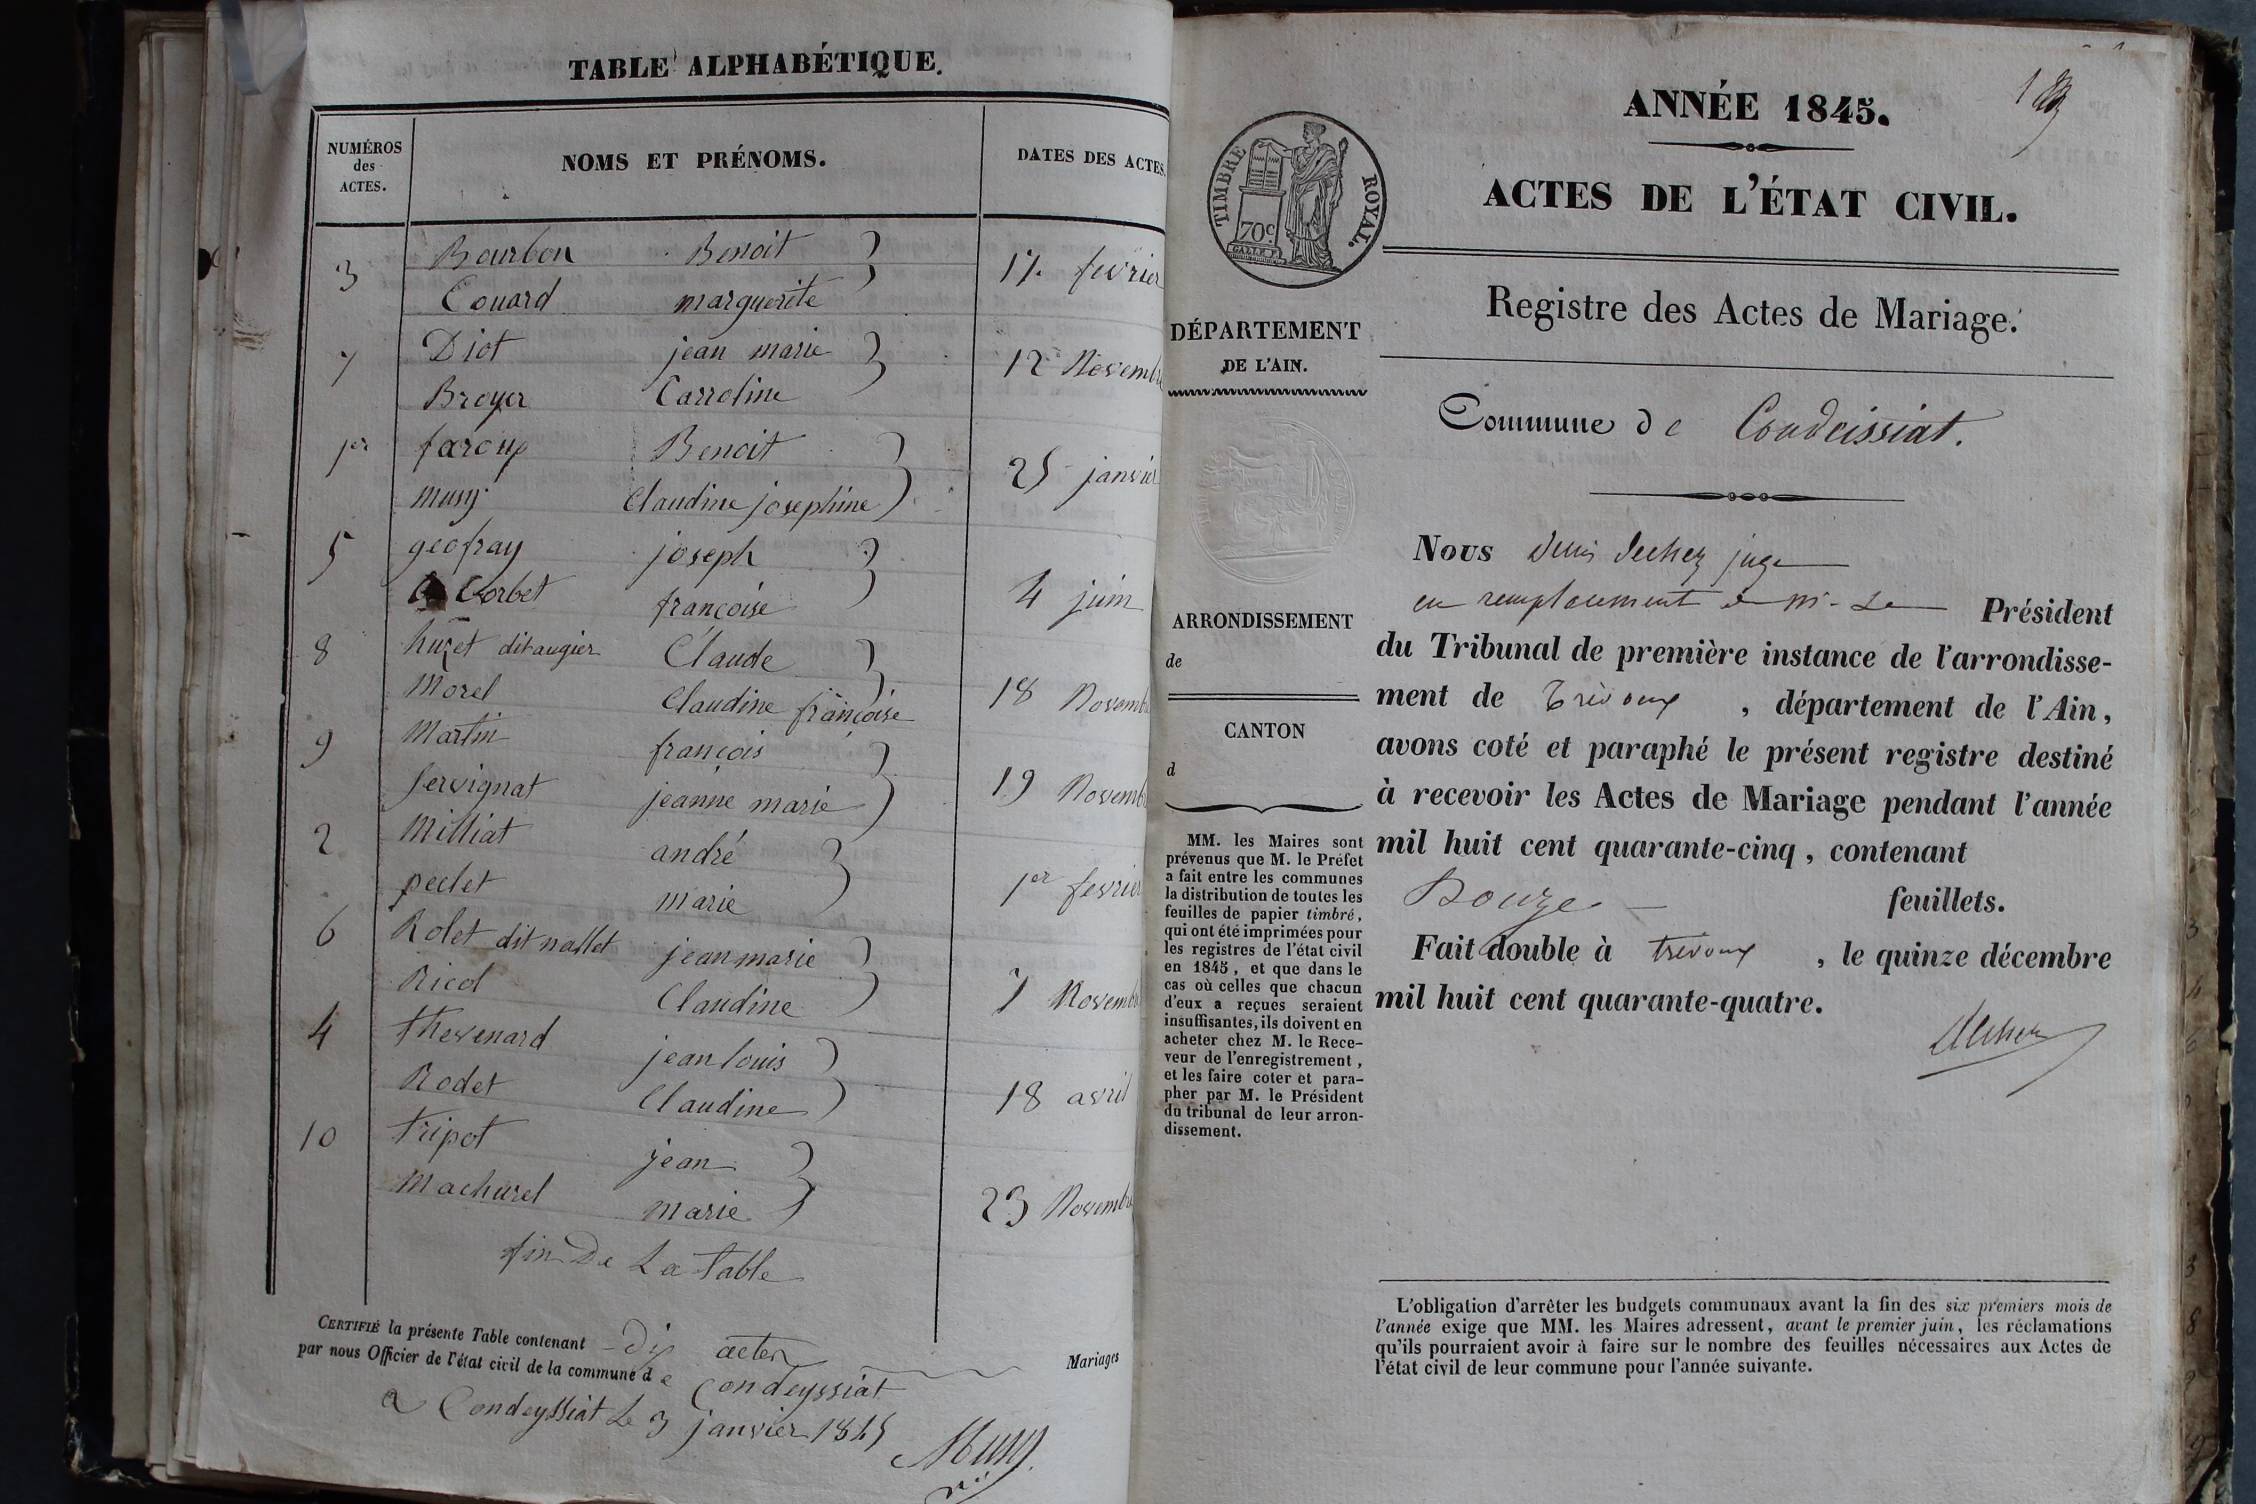 TABLE ALPHABÉTIQUE.
NUMÉROS des ACTES.
NOMS ET PRÉNOMS.
DATES DES ACTES.
3 Bourbon Benoit 17 fevrier
Couard marguerite
7 Diot jean marie 12 Novembre
Broyer Carroline
1er faroux Benoit 25 janvier
Musy Claudine josephine
5 geofray joseph 4 juin
Corbet françoise
8 huzet dit augier Claude 18 Novembre
Morel Claudine françoise
9 Martin françois 19 Novembre
Servignat jeanne marie
2 Milliat andré 1er fevrier
peclet marie
6 Rolet dit nallet jean marie 7 Novembre
Ricol Claudine
4 thevenard jean louis 18 avril
Rodet Claudine
10 tripot jean 23 Novembre
Machurel marie
fin De La table
CERTIFIÉ la présente Table contenant dix actes
par nous Officier de l'état civil de la commune de Condeyssiat
Mariages
a Condeyssiat Le 3 janvier 1845
Musy
ANNÉE 1845.
ACTES DE L'ÉTAT CIVIL.
TIMBRE ROYAL.
70c
Registre des Actes de Mariage.
DÉPARTEMENT
DE L'AIN.
Commune de Condeissiat.
ARRONDISSEMENT
de
CANTON
d
MM. les Maires sont
prévenus que M. le Préfet
a fait entre les communes
la distribution de toutes les
feuilles de papier timbré,
qui ont été imprimées pour
les registres de l'état civil
en 1845, et que dans le
cas où celles que chacun
d'eux a reçues seraient
insuffisantes, ils doivent en
acheter chez M. le Rece-
veur de l'enregistrement,
et les faire coter et para-
pher par M. le Président
du tribunal de leur arron-
dissement.
Nous Denis Dechez juge
en remplacement de M. Le Président
du Tribunal de première instance de l'arrondisse-
ment de Trévoux, département de l'Ain,
avons coté et paraphé le présent registre destiné
à recevoir les Actes de Mariage pendant l'année
mil huit cent quarante-cinq, contenant
Douze feuillets.
Fait double à trévoux, le quinze décembre
mil huit cent quarante-quatre.
Dechez
L'obligation d'arrêter les budgets communaux avant la fin des six premiers mois de
l'année exige que MM. les Maires adressent, avant le premier juin, les réclamations
qu'ils pourraient avoir à faire sur le nombre des feuilles nécessaires aux Actes de
l'état civil de leur commune pour l'année suivante.